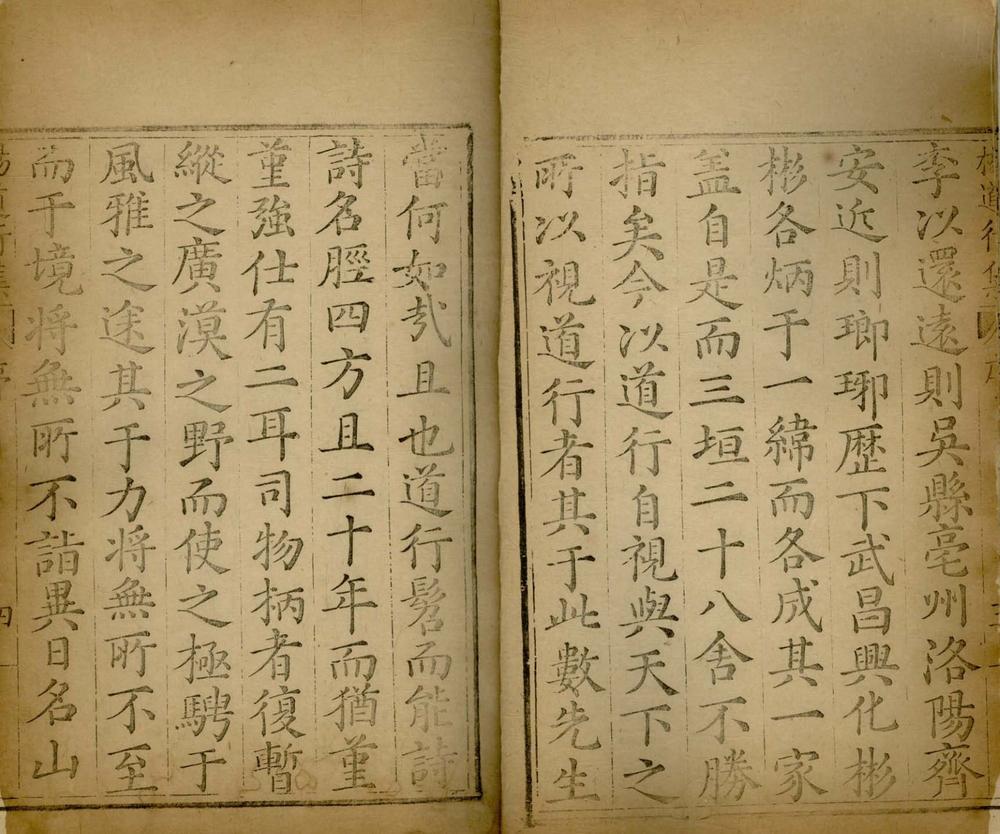 李以還遠則吳縣亳州洛陽齊
安近則瑯琊歷下武昌興化彬
彬各炳于一緯而各成其一家
盖自是而三垣二十八舍不勝
指矣今以道行自視與天下之
所以視道行者其于此數先生
當何如㢤且也道行髫而能詩
詩名脛四方且二十年而猶菫
菫強仕有二耳司物柄者復暫
縱之廣漠之野而使之極騁于
風雅之途其于力將無所不至
而于境將無所不詣異日名山